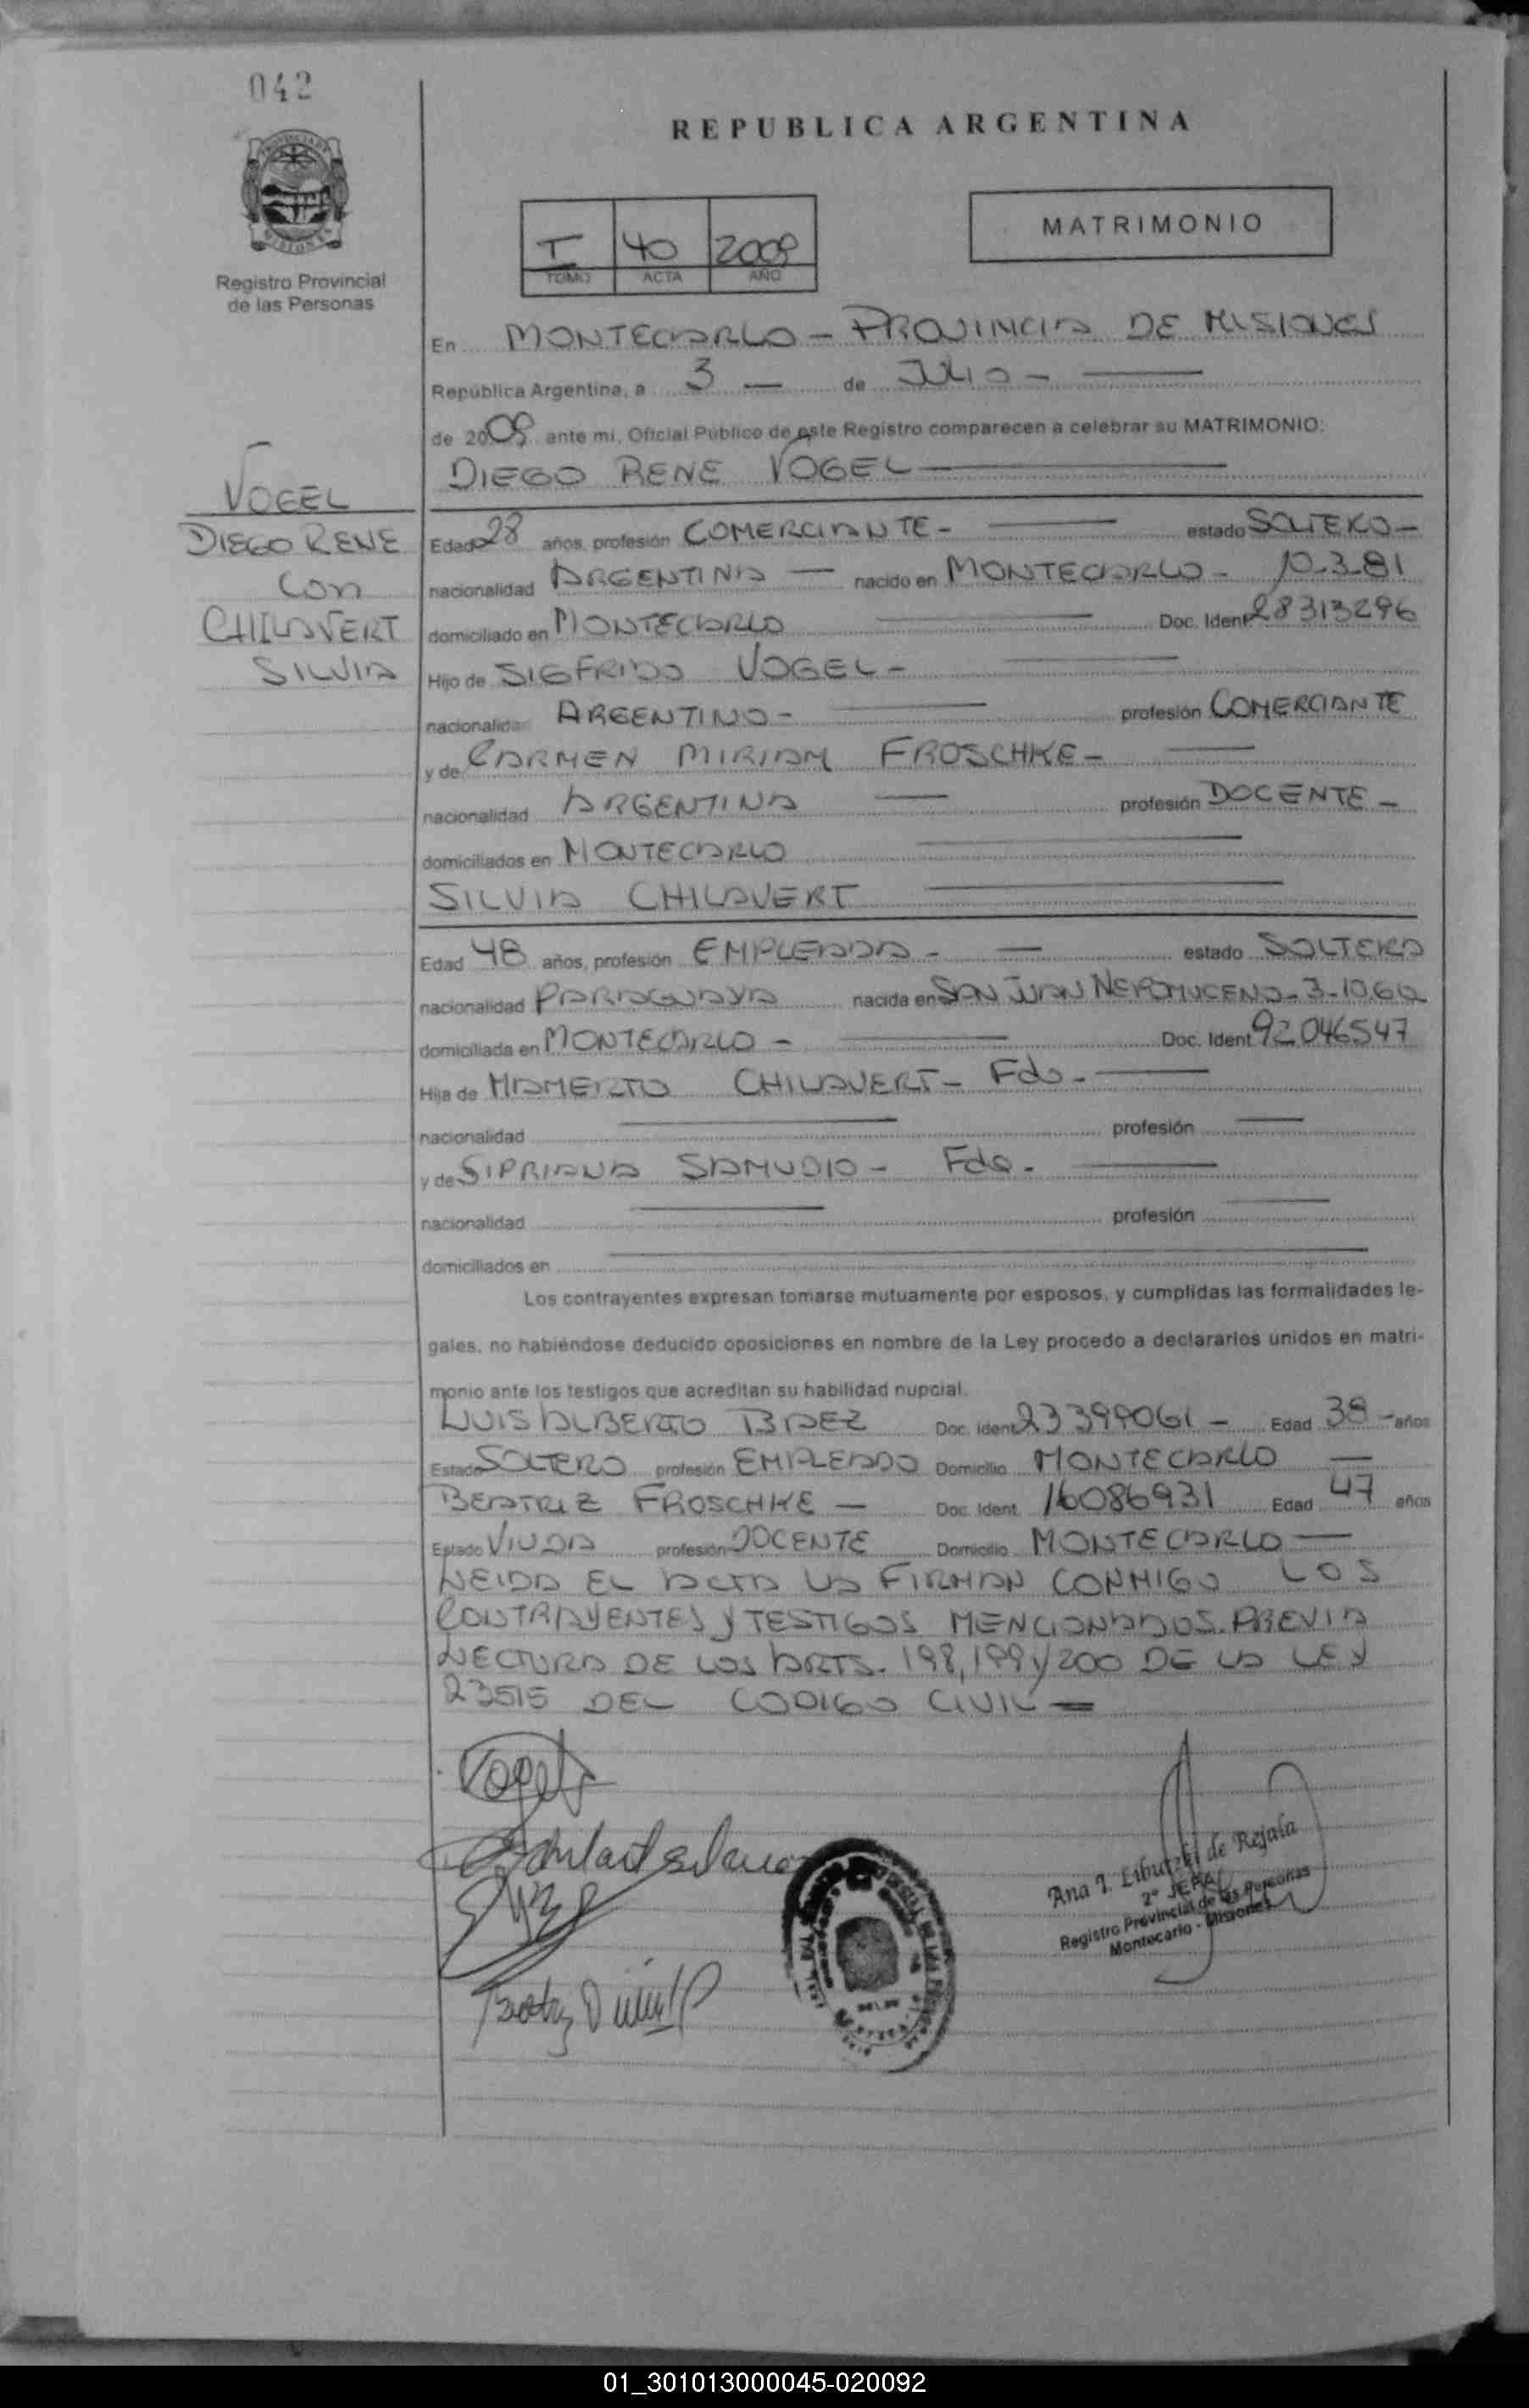 042
REPUBLICA ARGENTINA
MATRIMONIO
I 40 2009
TOMO ACTA AÑO
Registro Provincial
de las Personas
En MONTECARLO - PROVINCIA DE MISIONES
República Argentina, a 3 — de Julio -
de 2009 ante mi, Oficial Público de este Registro comparecen a celebrar su MATRIMONIO:
DIEGO RENE VOGEL
VOGEL
DIEGO RENE
con
CHILAVERT
SILVIA
Edad 28 años, profesión COMERCIANTE - estado SOLTERO -
nacionalidad ARGENTINA — nacido en MONTECARLO - 10-3-81
domiciliado en MONTECARLO Doc. Ident 28313296
Hijo de SIGFRIDO VOGEL -
nacionalidad ARGENTINO - profesión COMERCIANTE
y de CARMEN MIRIAM FROSCHKE -
nacionalidad ARGENTINA — profesión DOCENTE -
domiciliados en MONTECARLO
SILVIA CHILAVERT
Edad 48 años, profesión EMPLEADA - estado SOLTERA
nacionalidad PARAGUAYA nacida en SAN JUAN NEPOMUCENO - 3-10-60
domiciliada en MONTECARLO - Doc. Ident 92046547
Hija de MAMERTO CHILAVERT - Fdo -
nacionalidad profesión
y de SIPRIANA SAMUDIO - Fda -
nacionalidad profesión
domiciliados en
Los contrayentes expresan tomarse mutuamente por esposos, y cumplidas las formalidades le-
gales, no habiéndose deducido oposiciones en nombre de la Ley procedo a declararlos unidos en matri-
monio ante los testigos que acreditan su habilidad nupcial.
LUIS ALBERTO BAEZ Doc. Ident 23399061 - Edad 38 - años
Estado SOLTERO profesión EMPLEADO Domicilio MONTECARLO —
BEATRIZ FROSCHKE — Doc. Ident. 16086931 Edad 47 años
Estado VIUDA profesión DOCENTE Domicilio MONTECARLO —
LEIDA EL ACTA LA FIRMAN CONMIGO LOS
CONTRAYENTES Y TESTIGOS MENCIONADOS. PREVIA
LECTURA DE LOS ARTS. 198, 199 y 200 DE LA LEY
23515 DEL CODIGO CIVIL —
Vogel
Ana I. de Rejala
2° JEFA
Registro Provincial de las Personas
Montecarlo - Misiones
01_301013000045-020092